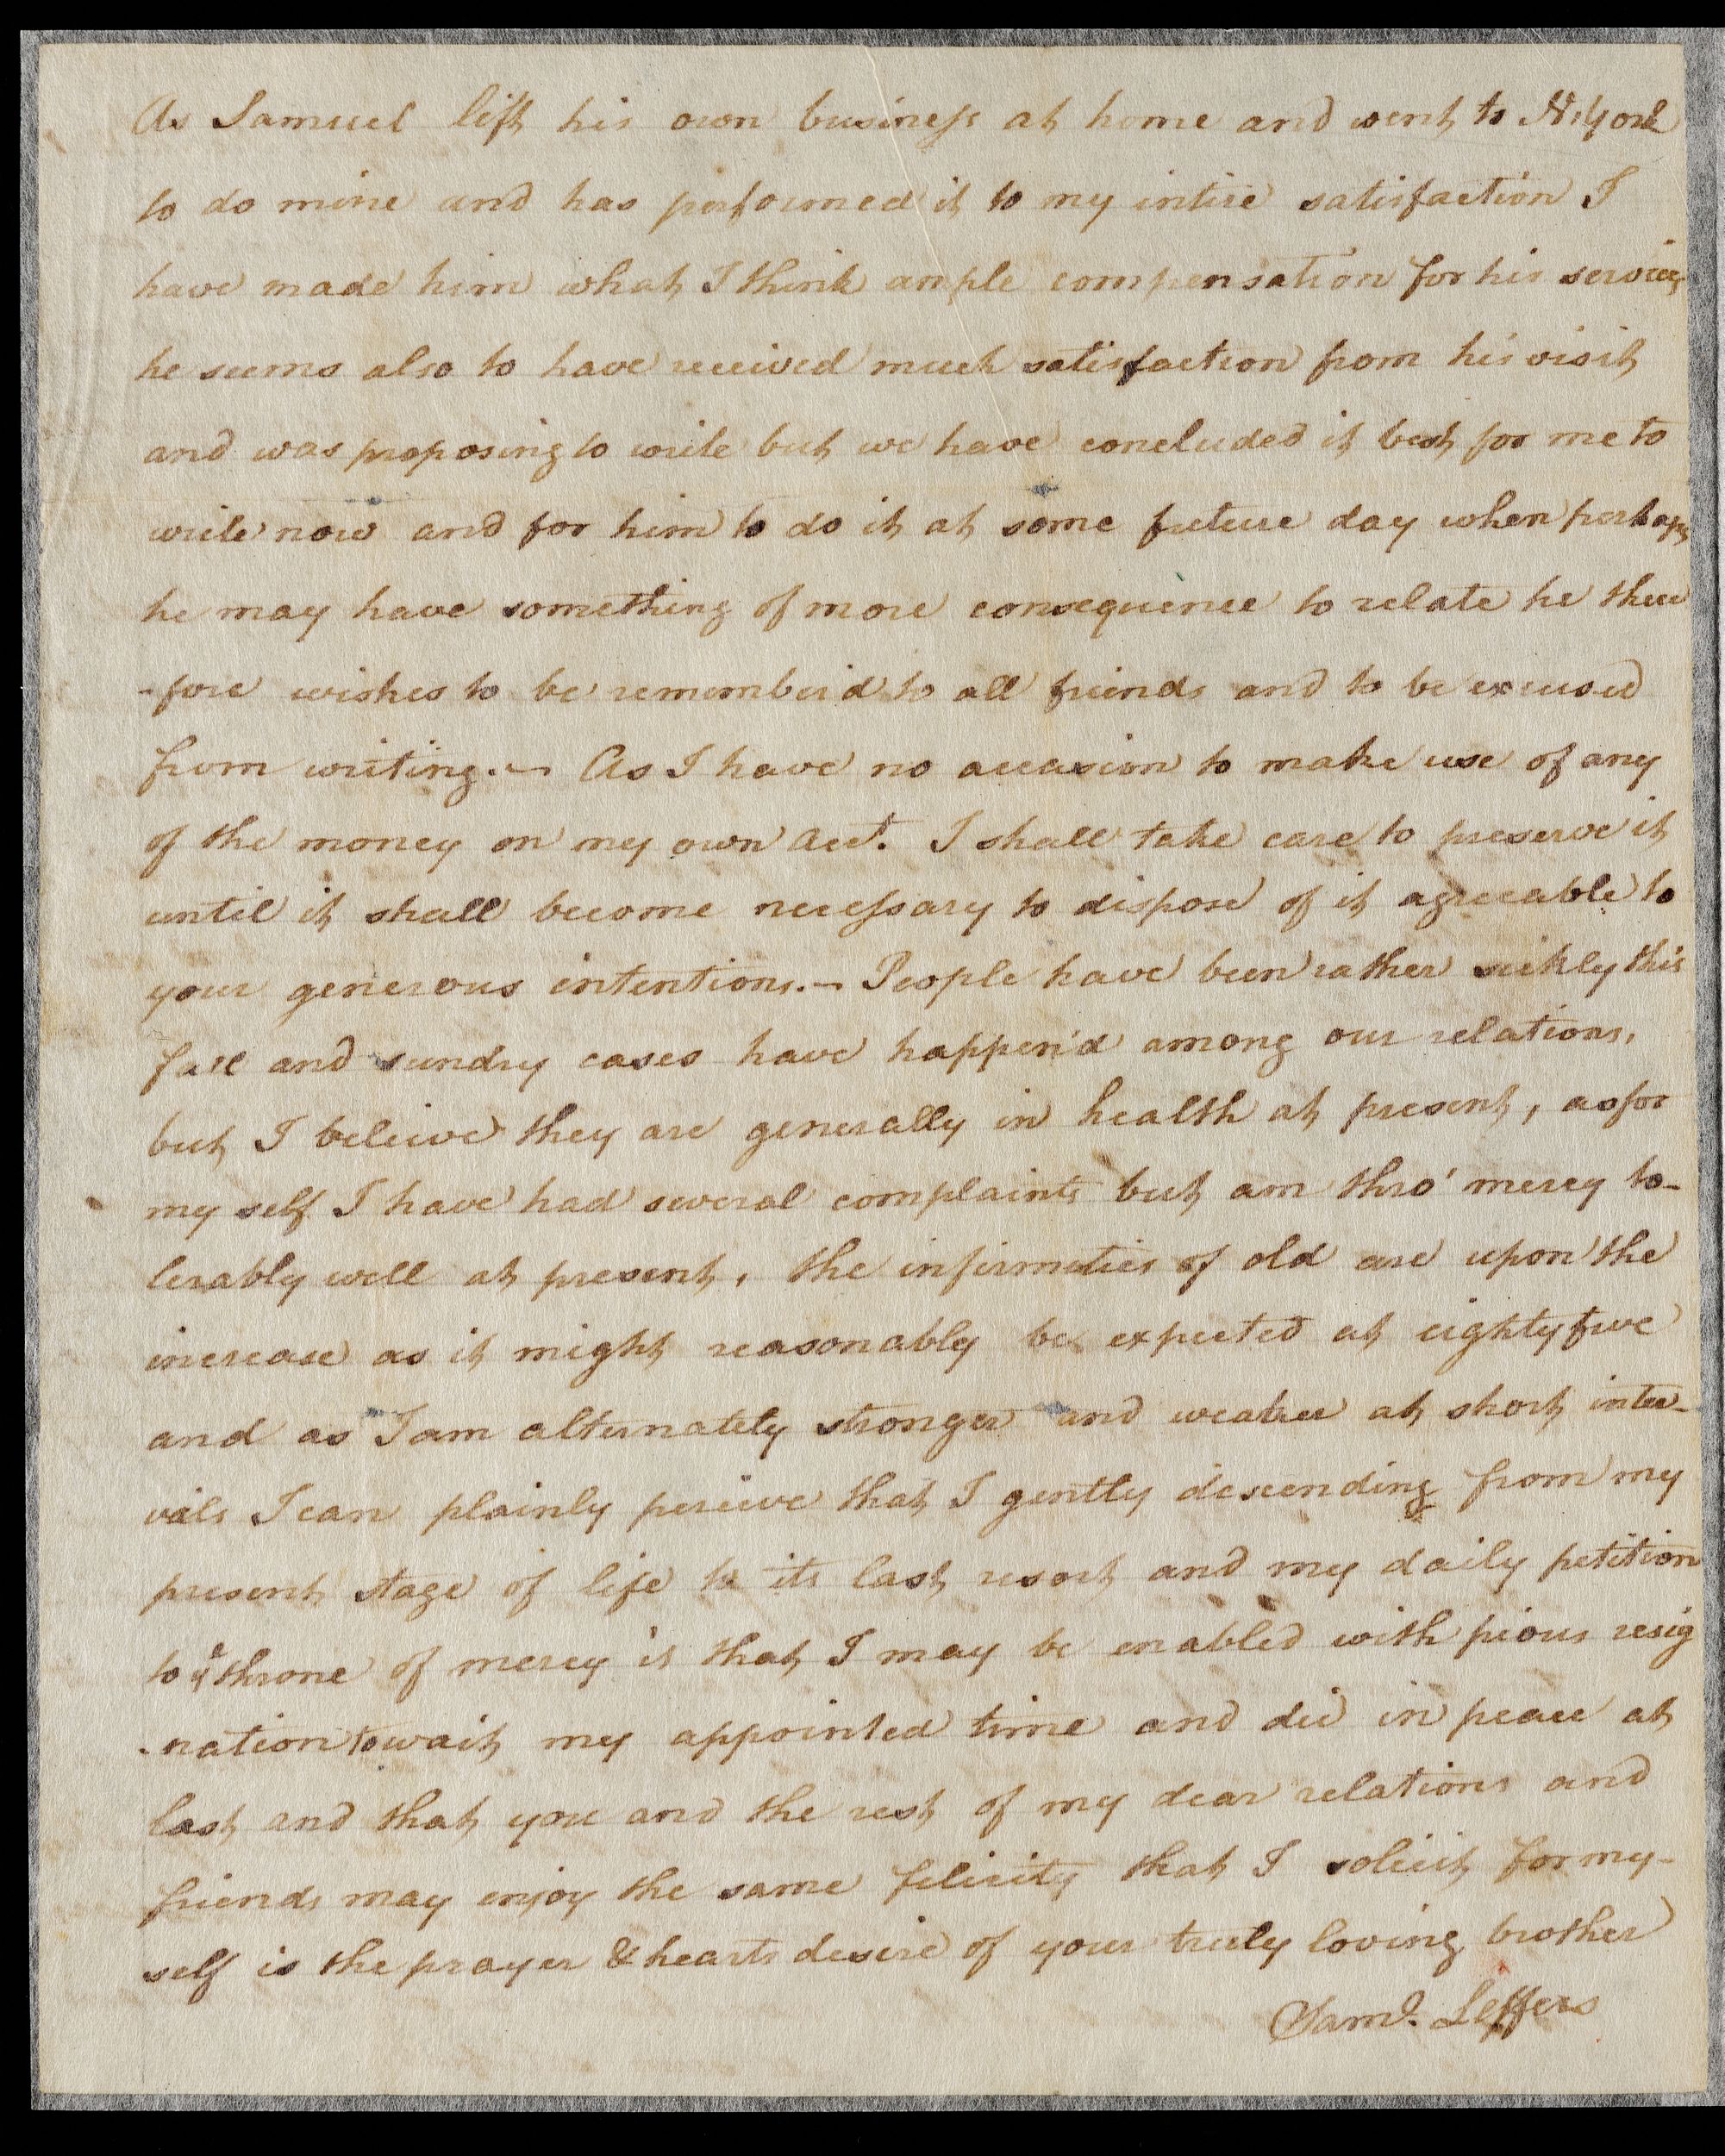 As Samuel left his own business at home and went to N. York
to do mine and has performed it to my intire satisfaction I
have made him what I think ample compensation for his services
he seems also to have received much satisfaction from his visit
and was proposing to write but we have concluded it best for me to
write now and for him to do it at some future day when perhaps
he may have something of more consequence to relate he there
-fore wishes to be rememberd to all friends and to be excused
from writing.— As I have no occasion to make use of any
of the money on my own acct. I shall take care to preserve it
until it shall become necessary to dispose of it agreeable to
your generous intentions.— People have been rather sickly this
fall and sundry cases have happen'd among our relations,
but I beleive they are generally in health at present, as for
my self I have had several complaints but am thro' mercy to-
lerably well at present, the infirmities of old are upon the
increase as it might reasonably be expected at eighty five
and as I am alternately stronger and weaker at short inter-
vals I can plainly perceive that I gently descending from my
present stage of life to its last resort and my daily petition
to ye throne of mercy is that I may be enabled with pious resig
-nation to wait my appointed time and die in peace at
last and that you and the rest of my dear relations and
friends may enjoy the same felicity that I solicit for my-
self is the prayer & hearts desire of your truly loving brother
Saml. Leffers